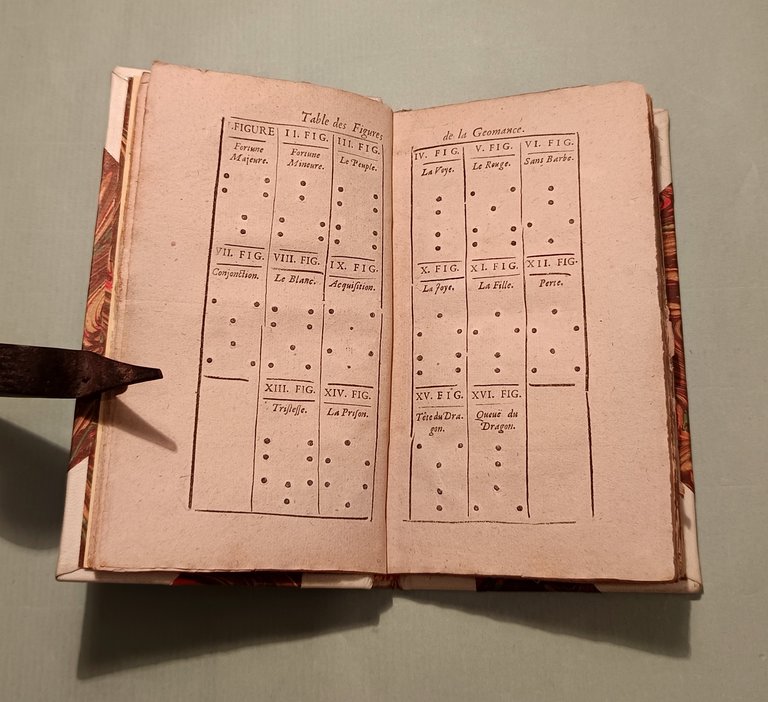 Table des Figures
I. FIGURE
Fortune
Majeure.
II. FIG.
Fortune
Mineure.
III. FIG.
Le Peuple.
VII. FIG.
Conjonction.
VIII. FIG.
Le Blanc.
IX. FIG.
Acquiſition.
XIII. FIG.
Triſteſſe.
XIV. FIG.
La Priſon.
de la Geomance.
IV. FIG.
La Voye.
V. FIG.
Le Rouge.
VI. FIG.
Sans Barbe.
X. FIG.
La Joye.
XI. FIG.
La Fille.
XII. FIG.
Perte.
XV. FIG.
Tête du Dra-
gon.
XVI. FIG.
Queuë du
Dragon.